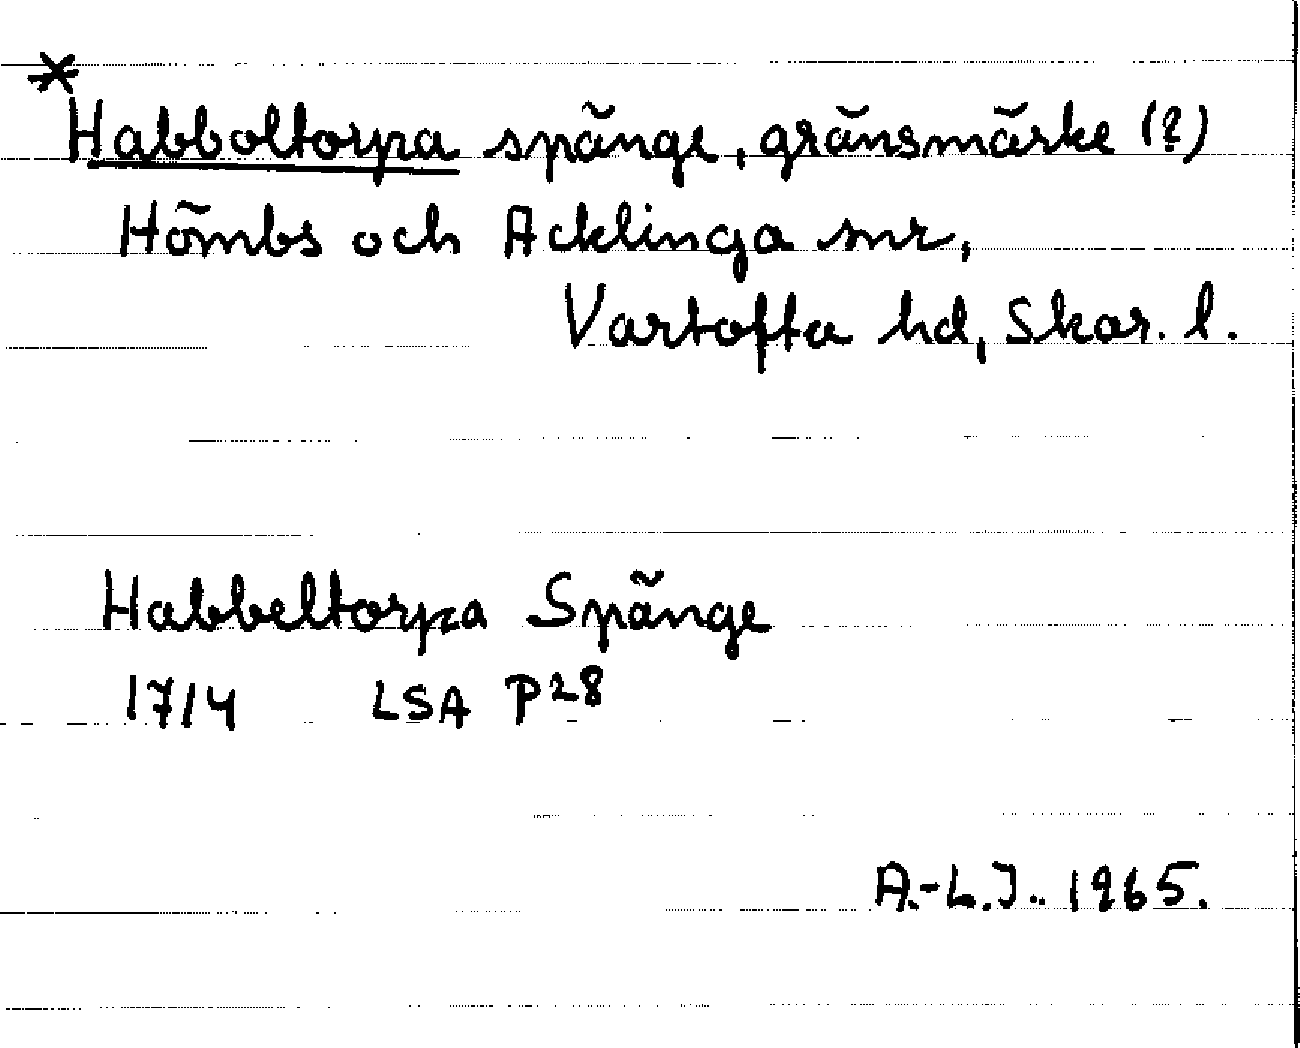 *
Habboltorpa spänge, gränsmärke (?)
Hömbs och Acklinga snr,
Vartofta hd, Skar. l.
Habbeltorpa Spänge
1714 LSA P28
A.-L.J. 1965.